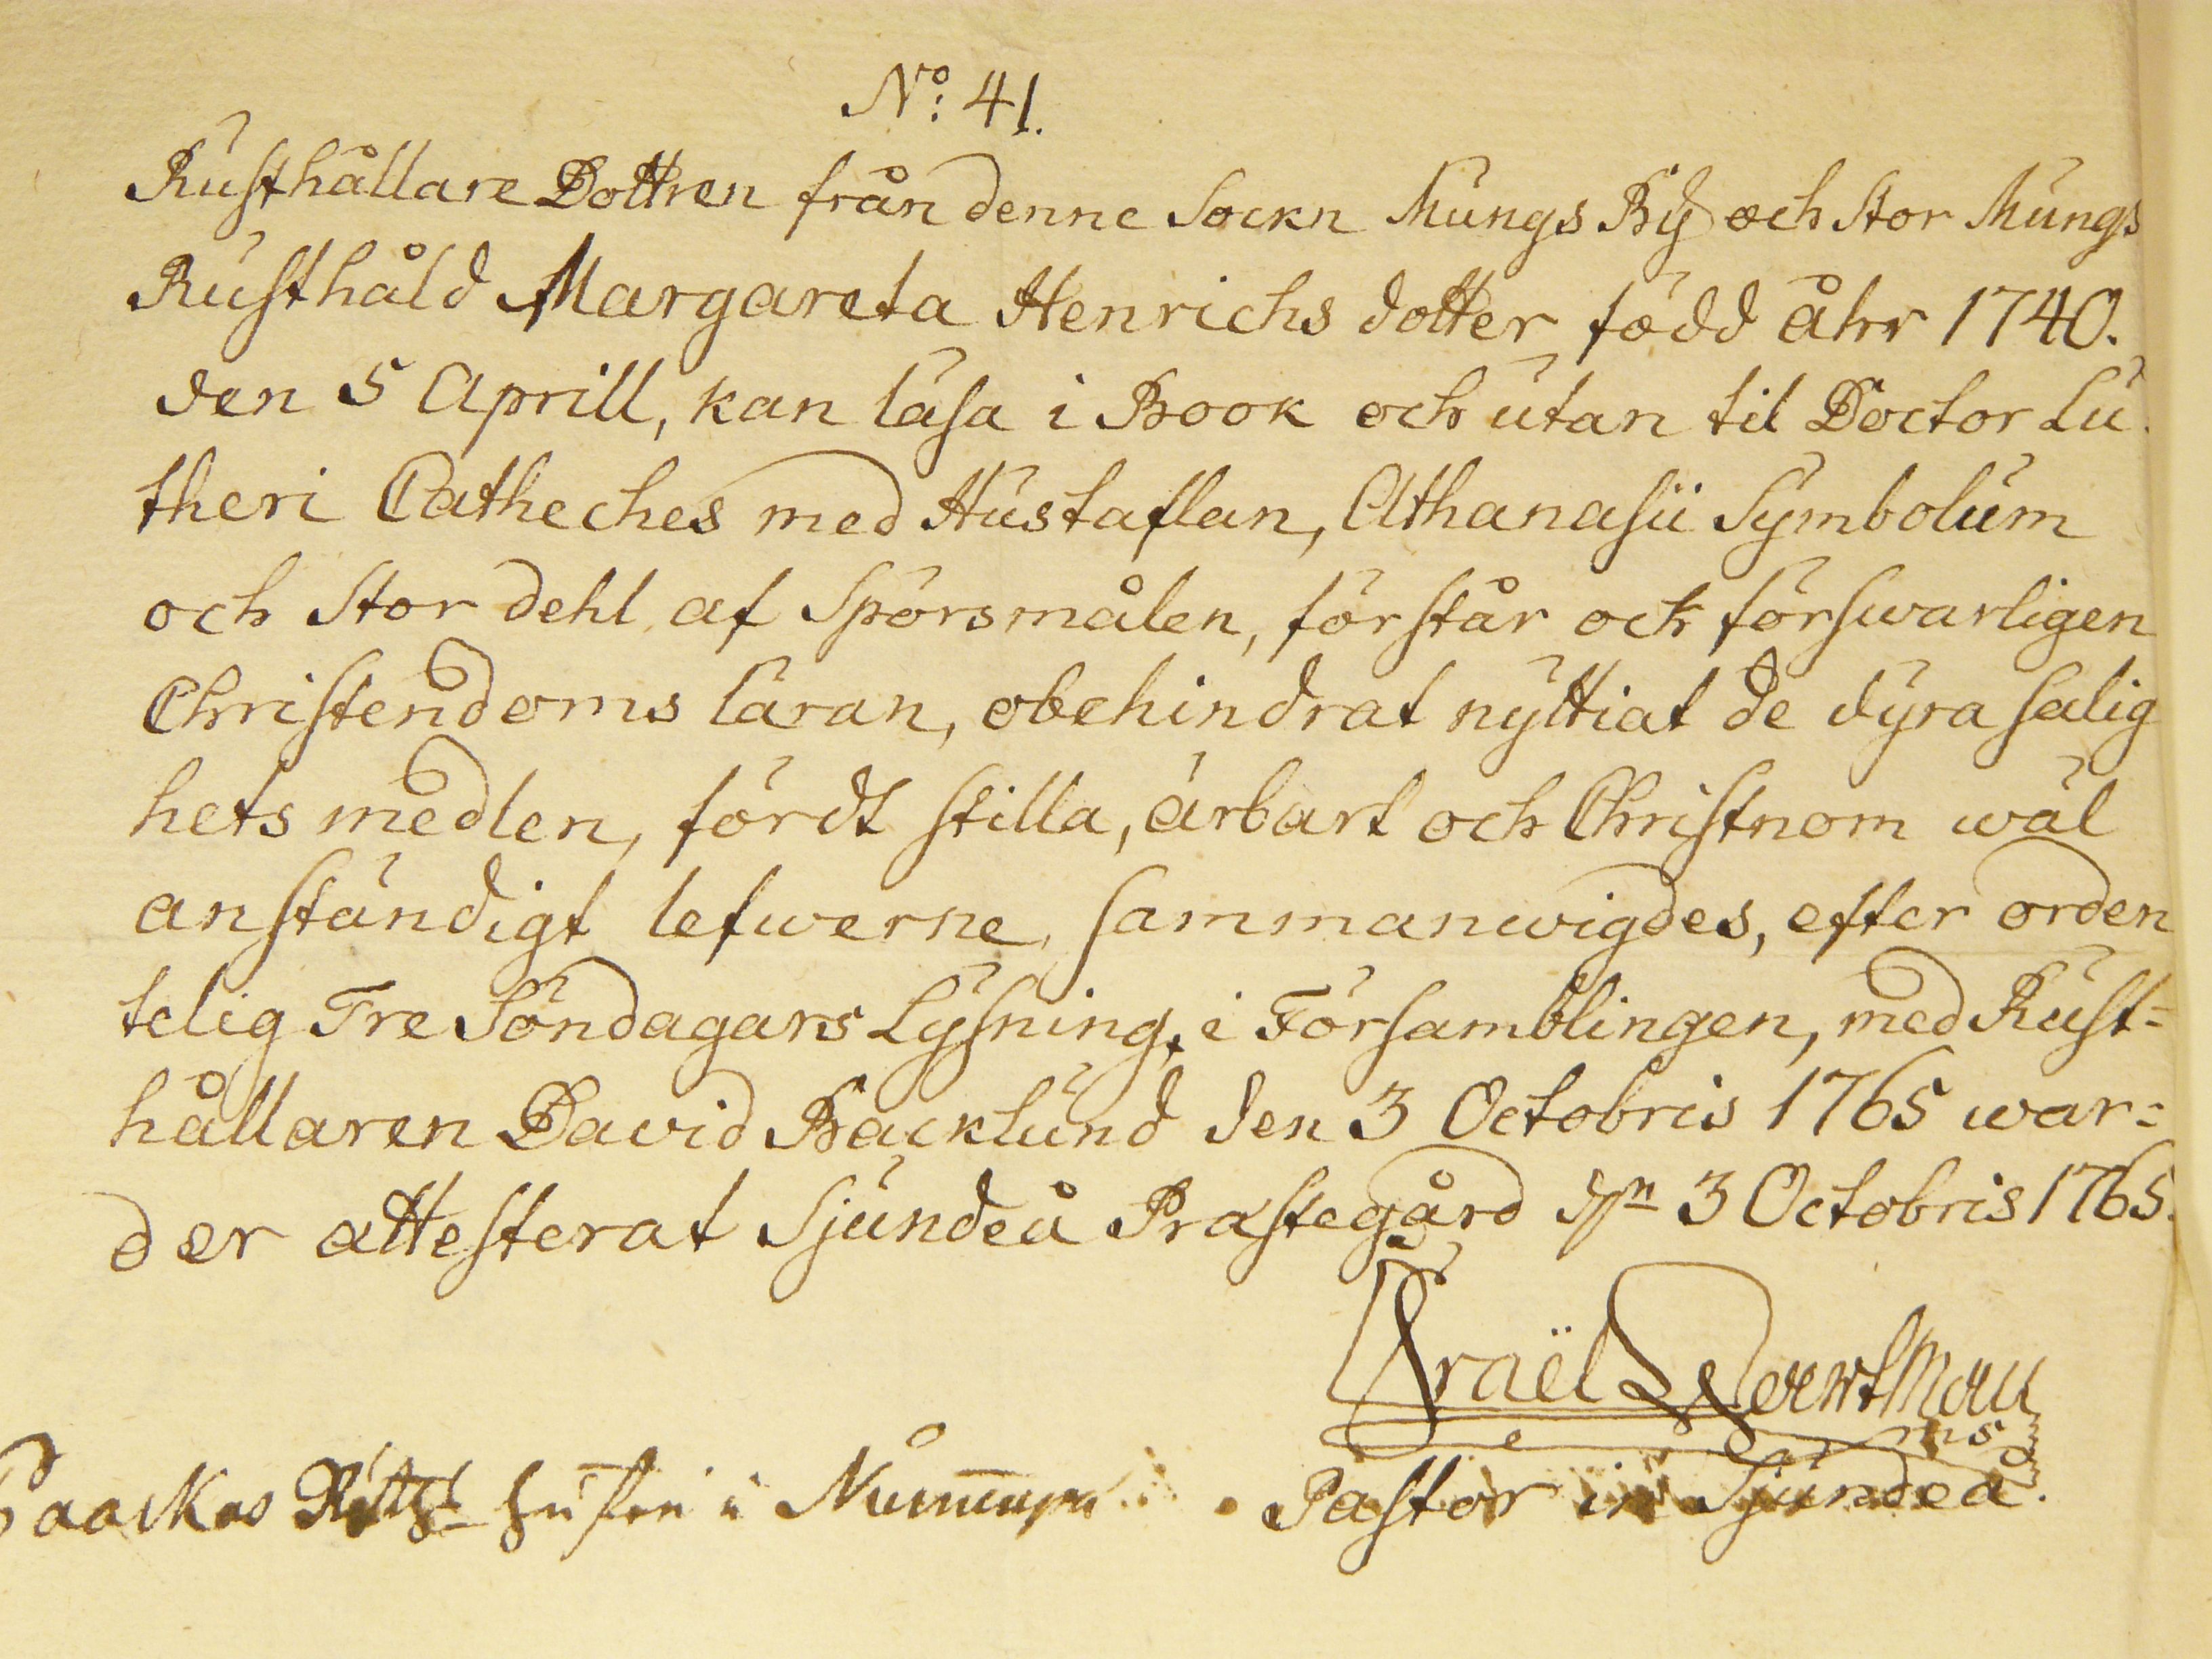 No: 41.
Rusthållare Dottren från denne Sockn Mungs By och Stor Mungs
Rusthåld Margareta Henrichs dotter född åhr 1740.
den 5 Aprill, kan läsa i Book och utan til Doctor Lu
theri Catheches med Hustaflan, Athanasii Symbolum
och Stor dehl af Spörsmålen, förstår och förswarligen
Christendoms läran, obehindrat nyttiat de dyra salig
hets medlen, fördt stilla, ärbart och Christnom wäl
anständigt lefwerne, sammanwigdes, efter orden
telig Tre Söndagars Lysning, i Församblingen, med Rust=
hållaren David Backlund den 3 Octobris 1765 war=
der attesterat Sjundeå Prästegård dn 3 Octobris 1765.
Israël Weert
Pastor in Sjundeå.
i